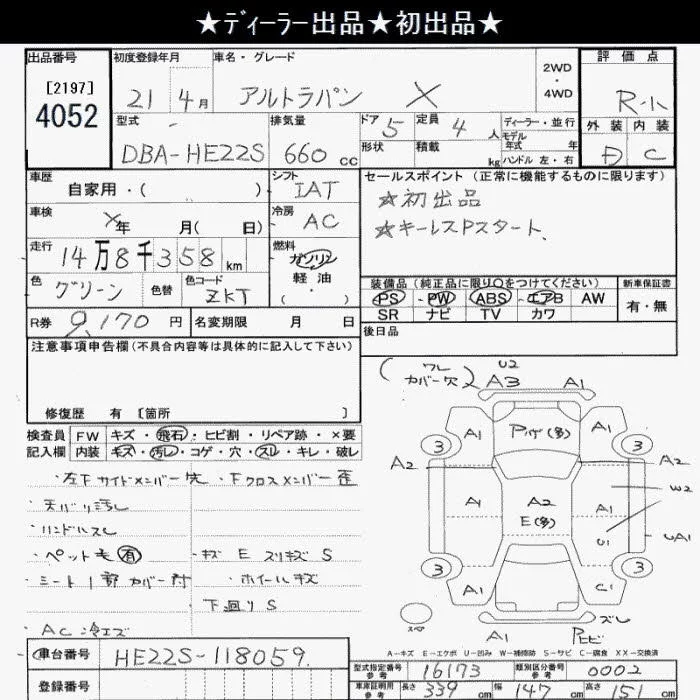 ★ディーラー出品★初出品★
出品番号
[2197]
4052
初度登録年月
21 4月
車名・グレード
アルトラパン X
2WD
・
4WD
評価点
R-小
外装 内装
D C
型式
DBA-HE22S
排気量
660 cc
ドア 5
定員 4 人
形状
積載 kg
ディーラー・並行
モデル
年式 年
ハンドル 左・右
車歴
自家用・( )
シフト
IAT
セールスポイント (正常に機能するものに限ります)
☆初出品
☆キーレスPスタート、
車検
X年 月( 日)
冷房
AC
走行
14万8千358 km
燃料
ガソリン
軽油
( ・ )
色
グリーン
色替
色コード
ZKT
装備品 (純正品に限り○をつけてください)
新車保証書
PS PW ABS エアB AW
有・無
SR ナビ TV カワ
R券 9,170 円
名変期限 月 日
後日品
注意事項申告欄(不具合内容等は具体的に記入して下さい)
修復歴 有 [箇所 ]
検査員
記入欄
FW キズ・飛石・ヒビ割・リペア跡・×要
内装 キズ・汚レ・コゲ・穴・スレ・キレ・破レ
・左下サイドメンバー先 ・Fクロスメンバー歪
・天バリ汚レ
・ハンドルスレ
・ペット毛有
・キズ E スリキズ S
・シート1部カバー付
・ホイールキズ
下廻り S
・AC冷エズ
(ワレ
カバー欠)
U2
A3
A1
A1
Pハゲ(多)
A1
3
3
A2
A2
A1
A2
E(多)
A1
W2
U1
UA1
3
3
A1
C1
スペ
A1
ズレ
Pヒビ
A-キズ E-エクボ U-凹み W-補修跡 S-サビ C-腐食 XX-交換済
車台番号
HE22S-118059.
登録番号
型式指定番号
参考
16173
類別区分番号
参考
0002
車庫証明用
参考
長さ 339 cm 幅 147 cm 高さ 151 cm